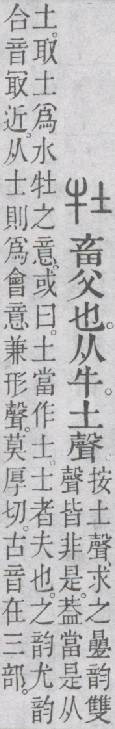 牡 畜父也。从牛。土聲
按土聲求之曡韵雙
聲皆非是。葢當是从
土。取土爲水牡之意。或曰。土當作士。士者夫也。之韵尤韵
合音冣近。从士則爲會意兼形聲。莫厚切。古音在三部。